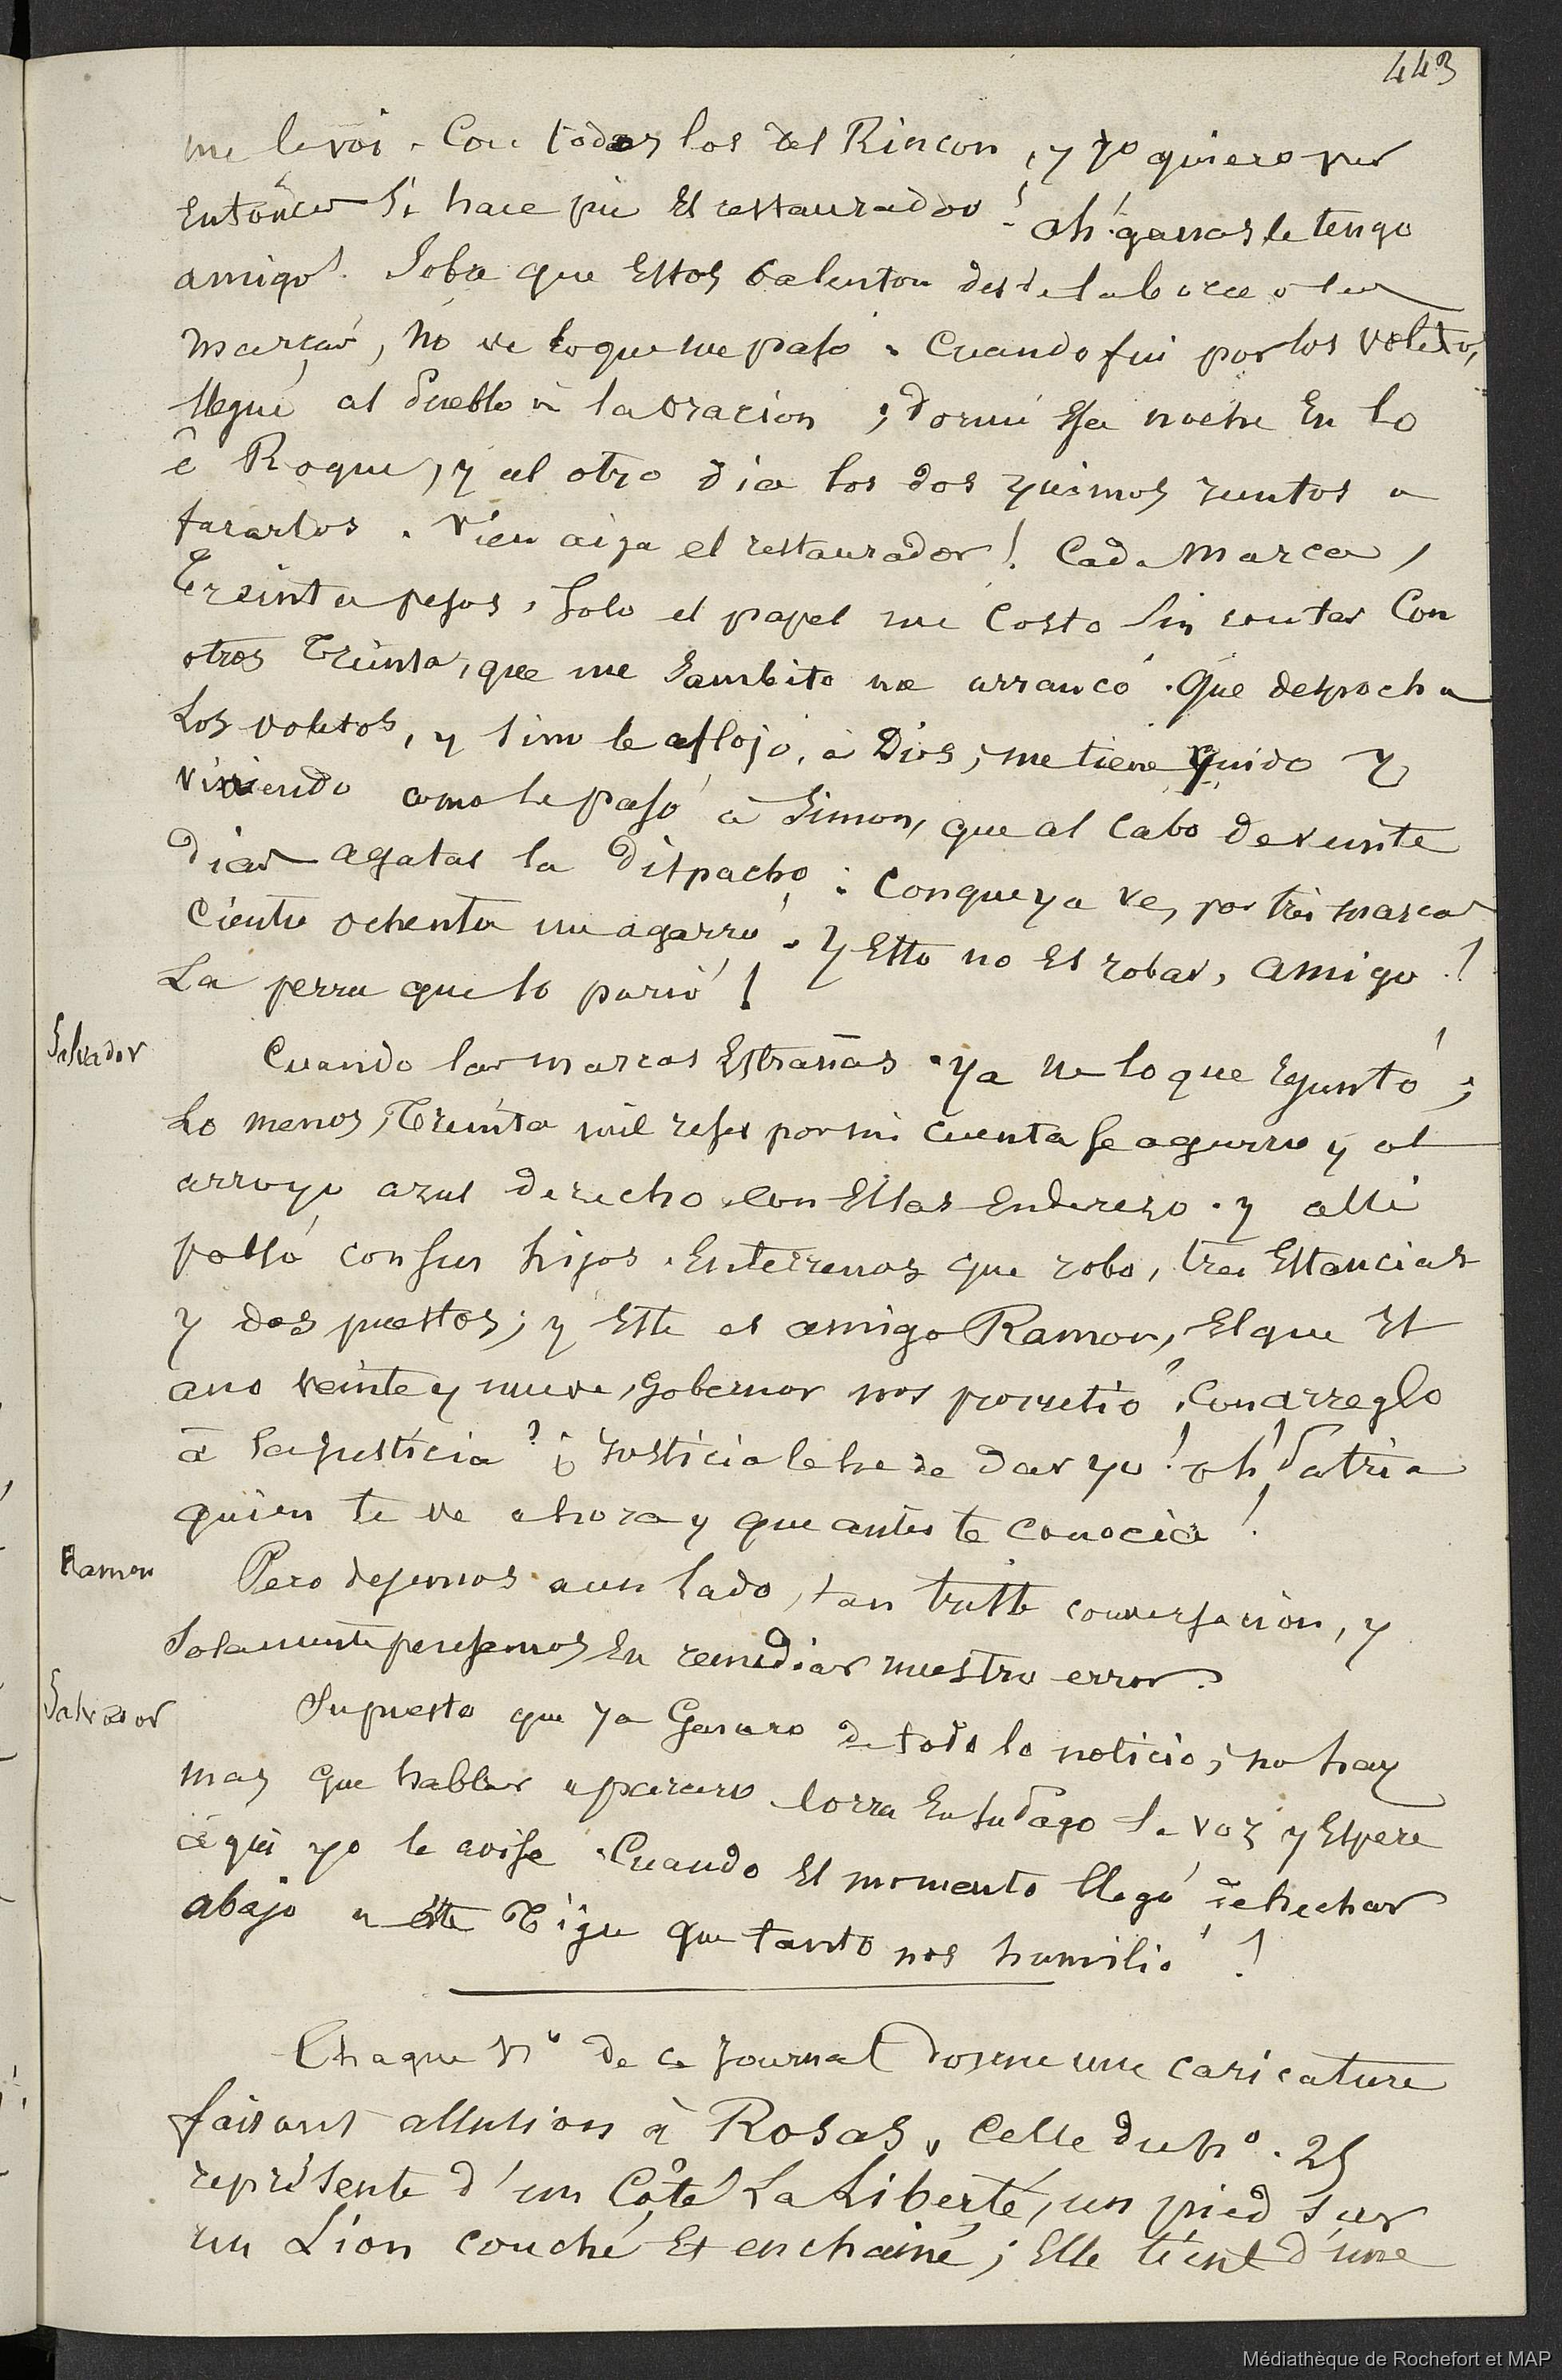 443
me le voi. Con todos los del Rincon, y yo quiero ver
Entonces Si hace pie El restaurador! Oh! ganas le tengo
amigo! Sobre que Estos balenton desde
marcar, no ve lo que me paso. Cuando fui por los voletos,
llegué al Pueblo à la oracion; dormi Esa noche En lo
e Roque, y al otro dia los dos yuimos juntos a
sacarlos. Vien aiga el restaurador! Cada Marca,
Treinta pesos, Solo el papel me Costo Sin contar Con
otros Treinta, que me Sambito me arrancó. Que despacha
Los voletos, y sino le aflojo, à Dios; me tiene yuido y
viniendo como le pasó à Simon, que al Cabo de veinte
Dias agatas la Dispacho. Conque ya ve, por tres marcas
Ciento ochenta me agarró. Y Esto no Es robar, amigo!
La perra que lo parió!
Salvador
Cuando las marcas Estrañas. ya ve lo que Ejuntó;
Lo menos, Treinta mil reses por mi cuenta Se agarro y al
arroyo azul derecho con Ellas Enderezo. y alli
pobló con Sus hijos. En terrenos que robo, tres Estancias
y dos puestos; y Este es amigo Ramon, El que El
ano veinte y nueve, gobernar nos prometió, Con arreglo
à la justicia? ¡Justicia le he de dar yo! oh! Patria
quien te ve ahora y que antes te conocia!
Ramon
Pero dejemos a un lado, tan triste conversacion, y
Solamente pensemos En remediar nuestro error.
Salvador
Supuesto que ya Genaro de todo lo noticio, no hay
mas que hablar aparcero Corra En su Pago la voz y Espere
à qui yo le avise. Cuando El momento llegó de hechar
abajo a este Tigre que tanto nos humilió!
Chaque N° de ce Journal donne une caricature
faisant allusion à Rosas. Celle du N°. 25
représente d'un Côté La Liberté, un pied sur
un Lion couché Et enchainé; Elle tient d'une
Médiathèque de Rochefort et MAP